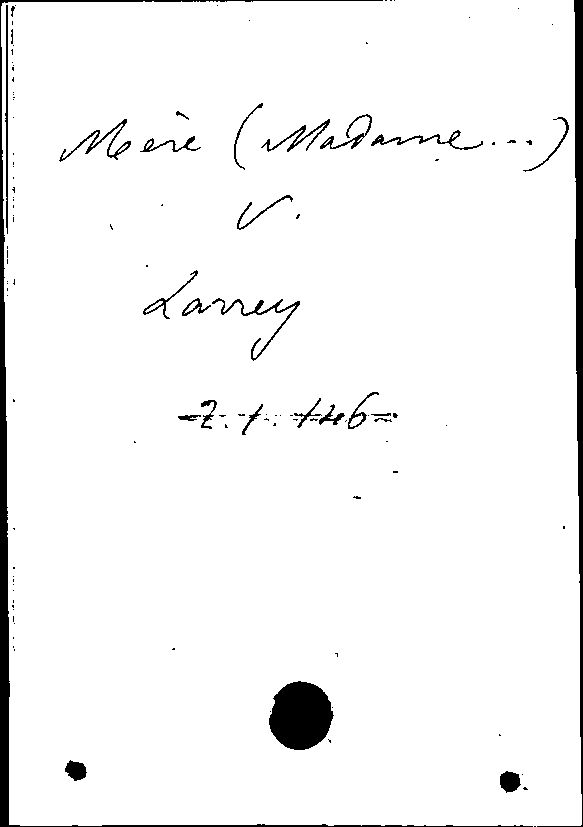 Mère (Madame...)
V.
Larrey
2. 1. 146